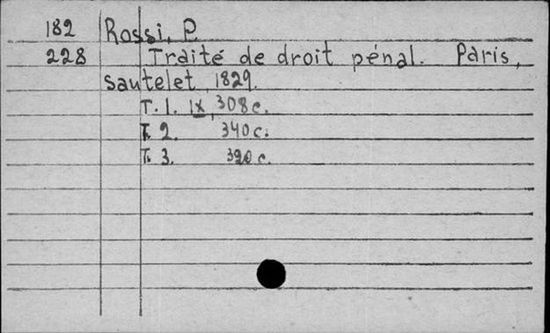 182 Rossi, P.
228 Traité de droit pénal. Paris,
sautelet, 1829.
T. 1. IX, 308 c.
T. 2. 340 c.
T. 3. 320 c.